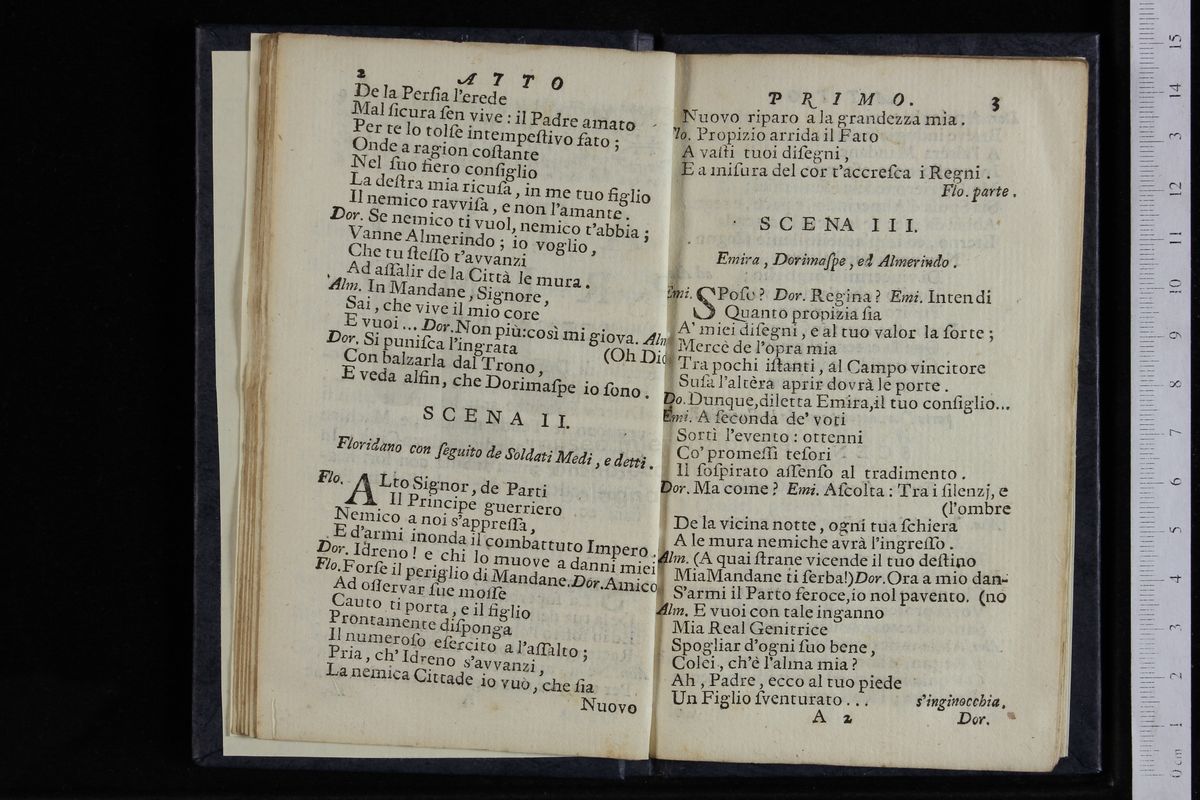 2 ATTO
De la Perſia l'erede
Mal ſicura ſen vive : il Padre amato
Per te lo tolſe intempeſtivo fato ;
Onde a ragion coſtante
Nel ſuo fiero conſiglio
La deſtra mia ricuſa, in me tuo figlio
Il nemico ravviſa, e non l'amante.
Dor. Se nemico ti vuol, nemico t'abbia ;
Vanne Almerindo ; io voglio,
Che tu ſteſſo t'avvanzi
Ad aſſalir de la Città le mura.
Alm. In Mandane, Signore,
Sai, che vive il mio core
E vuoi ... Dor. Non più:così mi giova. Alm
Dor. Si puniſca l'ingrata (Oh Dio
Con balzarla dal Trono,
E veda alfin, che Dorimaſpe io ſono.
SCENA II.
Floridano con ſeguito de Soldati Medi, e detti.
Flo. ALto Signor, de Parti
Il Principe guerriero
Nemico a noi s'appreſſa,
E d'armi inonda il combattuto Impero.
Dor. Idreno! e chi lo muove a danni miei
Flo. Forſe il periglio di Mandane. Dor. Amico
Ad oſſervar ſue moſſe
Cauto ti porta, e il figlio
Prontamente diſponga
Il numeroſo eſercito a l'aſſalto ;
Pria, ch'Idreno s'avvanzi,
La nemica Cittade io vuò, che ſia
Nuovo
PRIMO. 3
Nuovo riparo a la grandezza mia.
Flo. Propizio arrida il Fato
A vaſti tuoi diſegni,
E a miſura del cor t'accreſca i Regni.
Flo. parte.
SCENA III.
Emira, Dorimaſpe, ed Almerindo.
Emi. SPoſo? Dor. Regina? Emi. Intendi
Quanto propizia ſia
A' miei diſegni, e al tuo valor la ſorte ;
Mercè de l'opra mia
Tra pochi iſtanti, al Campo vincitore
Suſa l'altèra aprir dovrà le porte.
Do. Dunque, diletta Emira, il tuo conſiglio...
Emi. A ſeconda de' voti
Sortì l'evento : ottenni
Co' promeſſi teſori
Il ſoſpirato aſſenſo al tradimento.
Dor. Ma come? Emi. Aſcolta : Tra i ſilenzj, e
(l'ombre
De la vicina notte, ogni tua ſchiera
A le mura nemiche avrà l'ingreſſo.
Alm. (A quai ſtrane vicende il tuo deſtino
Mia Mandane ti ſerba!) Dor. Ora a mio dan-
S'armi il Parto feroce, io nol pavento. (no
Alm. E vuoi con tale inganno
Mia Real Genitrice
Spogliar d'ogni ſuo bene,
Colei, ch'è l'alma mia?
Ah, Padre, ecco al tuo piede
Un Figlio ſventurato... s'inginocchia.
A 2 Dor.
0 cm 1 2 3 4 5 6 7 8 9 10 11 12 13 14 15